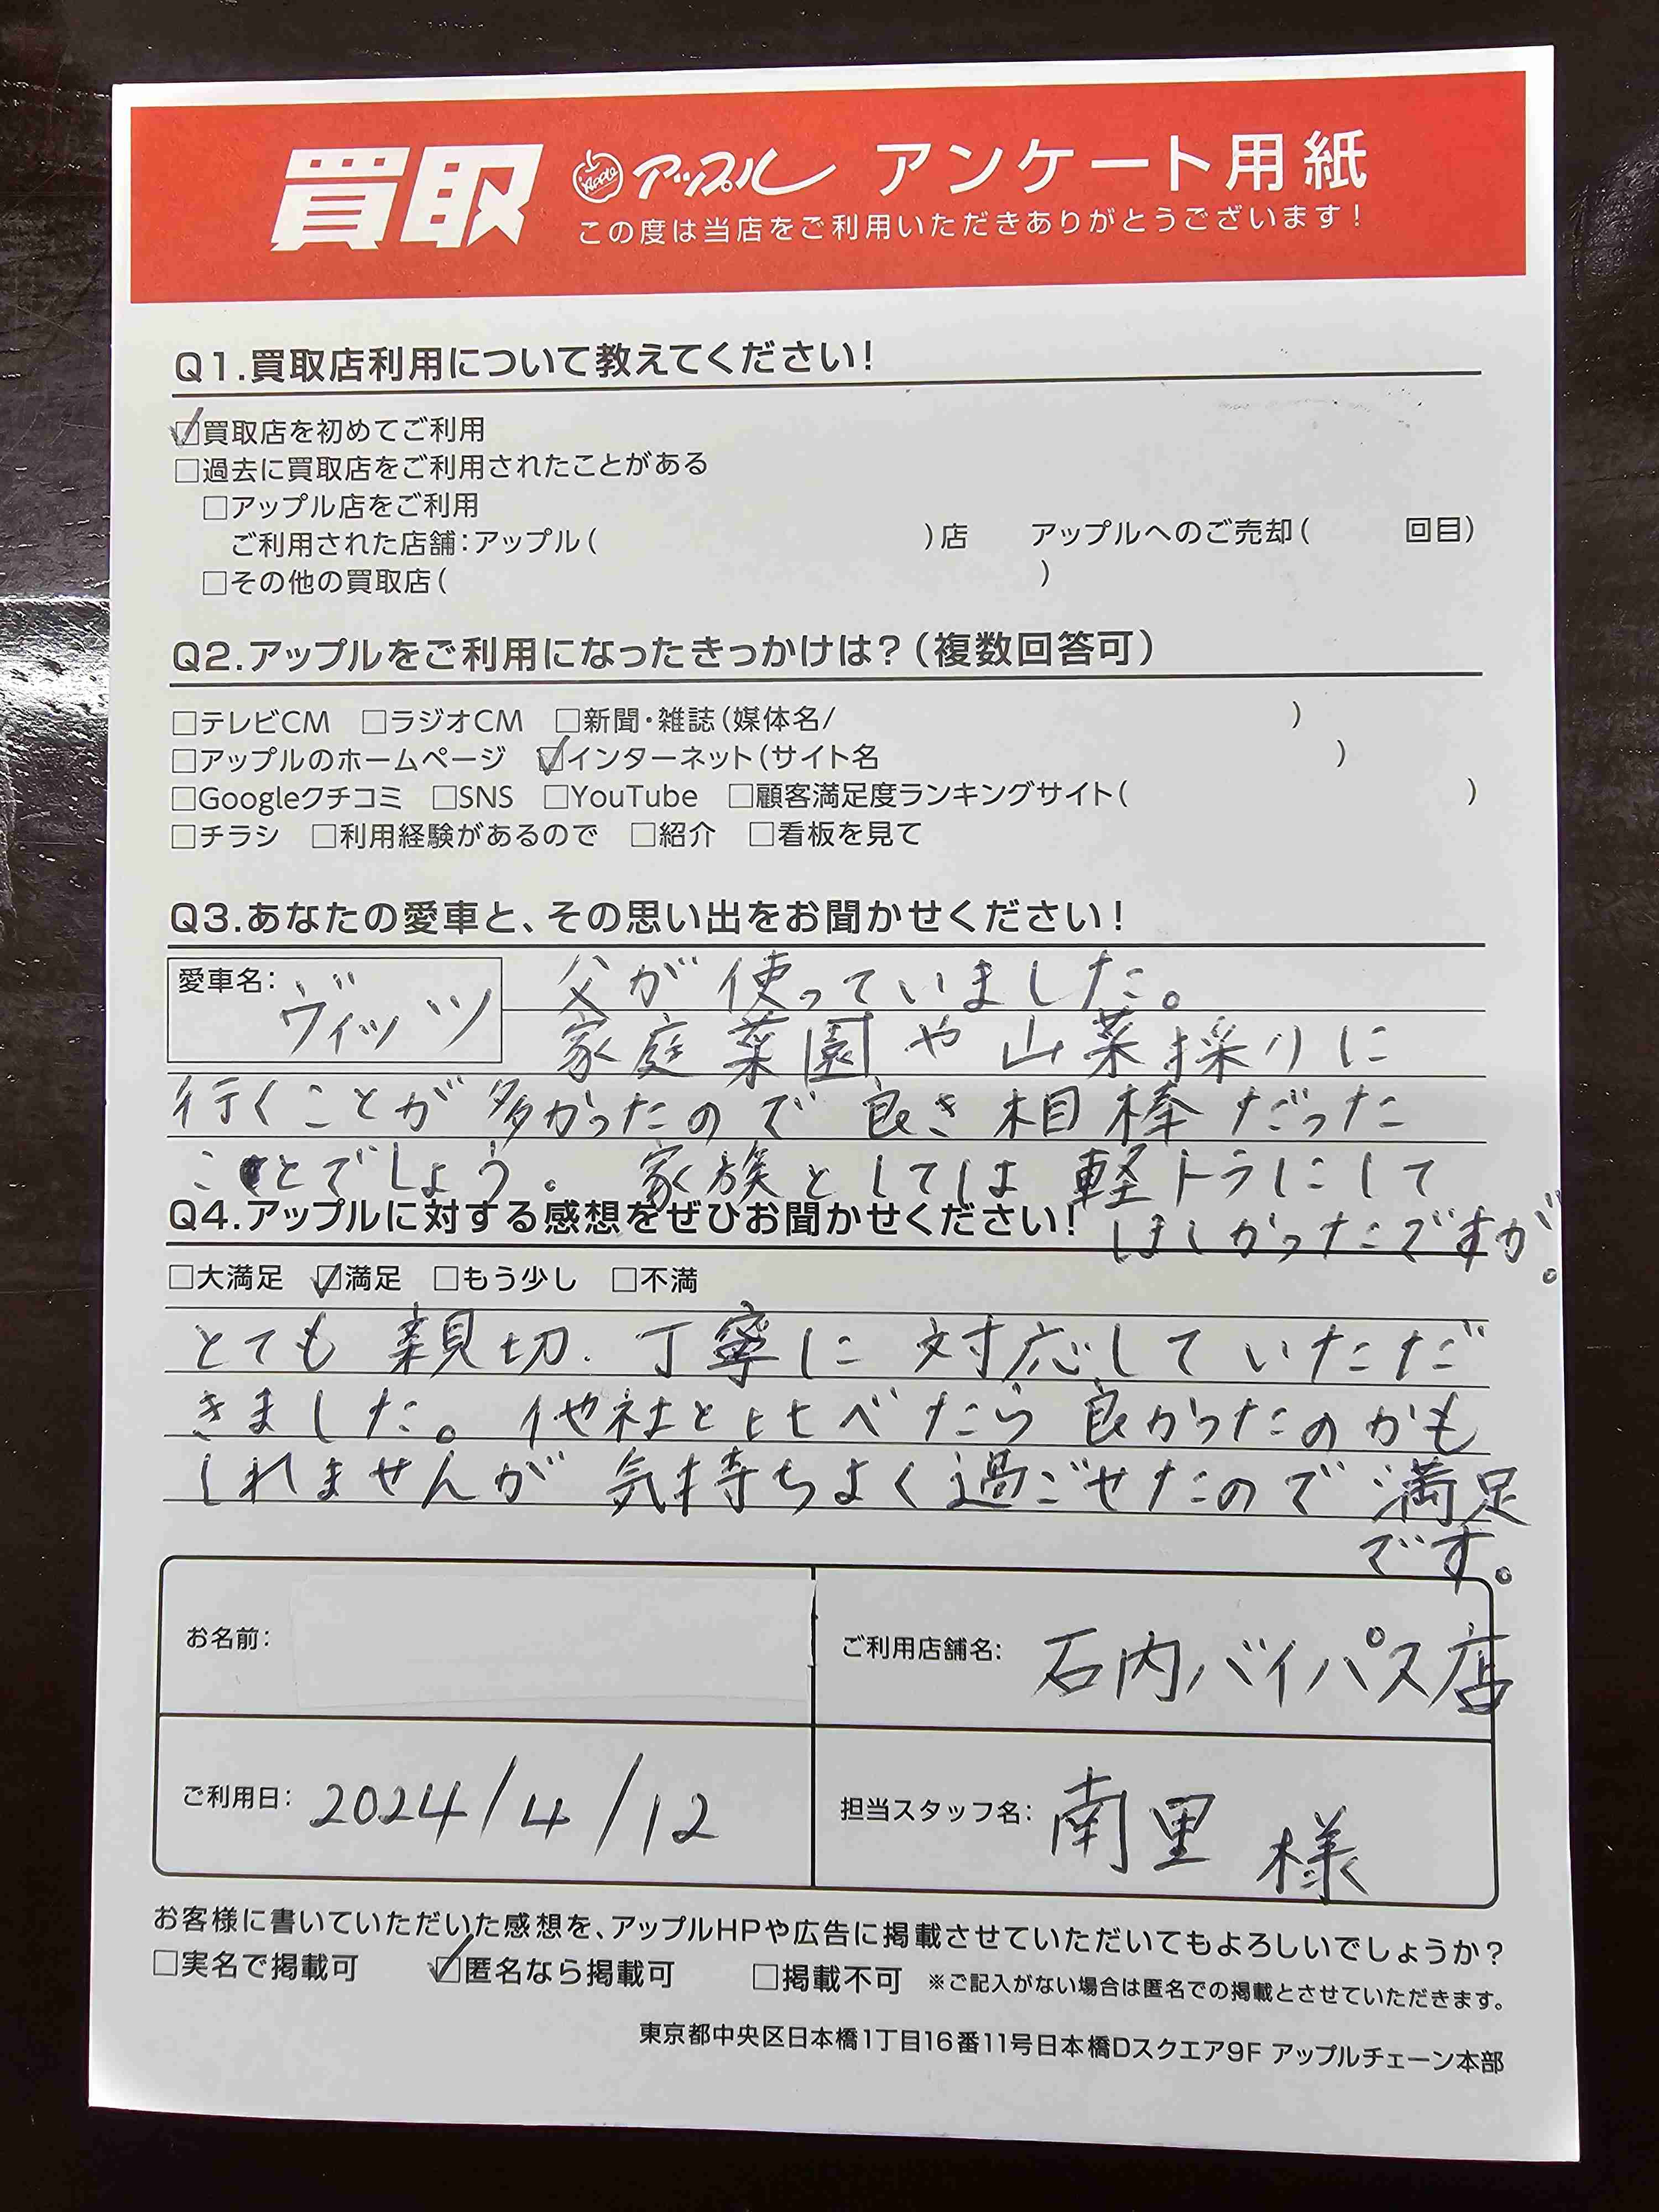 買取 Apple アップル アンケート用紙
この度は当店をご利用いただきありがとうございます!
Q1.買取店利用について教えてください!
☑買取店を初めてご利用
□過去に買取店をご利用されたことがある
□アップル店をご利用
ご利用された店舗:アップル( )店 アップルへのご売却( 回目)
□その他の買取店( )
Q2.アップルをご利用になったきっかけは?(複数回答可)
□テレビCM □ラジオCM □新聞・雑誌(媒体名/ )
□アップルのホームページ ☑インターネット(サイト名 )
□Googleクチコミ □SNS □YouTube □顧客満足度ランキングサイト( )
□チラシ □利用経験があるので □紹介 □看板を見て
Q3.あなたの愛車と、その思い出をお聞かせください!
愛車名: ヴィッツ 父が使っていました。
家庭菜園や山菜採りに
行くことが多かったので良き相棒だった
ことでしょう。家族としては軽トラにして
ほしかったですが。
Q4.アップルに対する感想をぜひお聞かせください!
□大満足 ☑満足 □もう少し □不満
とても親切、丁寧に対応していただ
きました。他社と比べたら良かったのかも
しれませんが気持ちよく過ごせたので満足
です。
お名前:
ご利用店舗名: 石内バイパス店
ご利用日: 2024/4/12
担当スタッフ名: 南里 様
お客様に書いていただいた感想を、アップルHPや広告に掲載させていただいてもよろしいでしょうか?
□実名で掲載可 ☑匿名なら掲載可 □掲載不可 ※ご記入がない場合は匿名での掲載とさせていただきます。
東京都中央区日本橋1丁目16番11号日本橋Dスクエア9F アップルチェーン本部